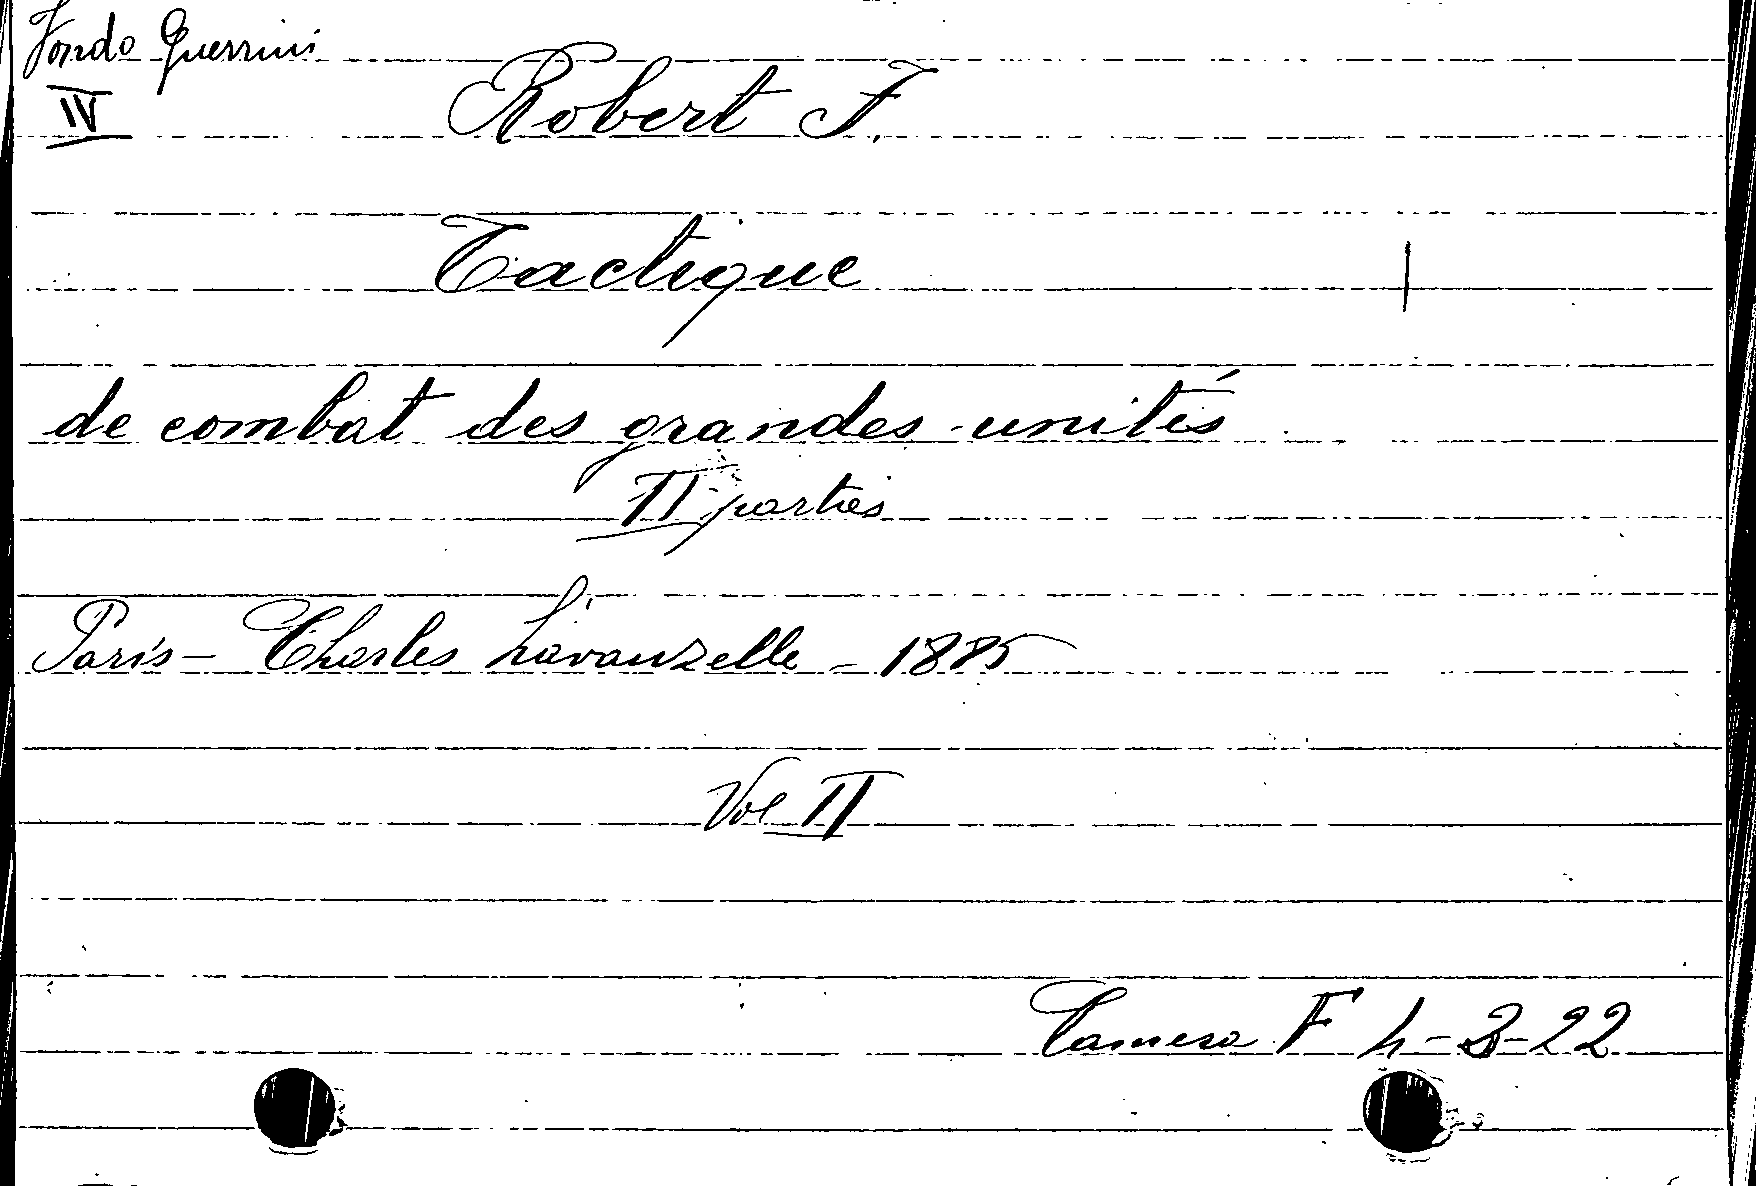 Fondo Guerrini
IV
Robert F.
Tactique
de combat des grandes unités
II parties
Paris – Charles Lavauzelle – 1885
Vol II
Camera F 4-3-22